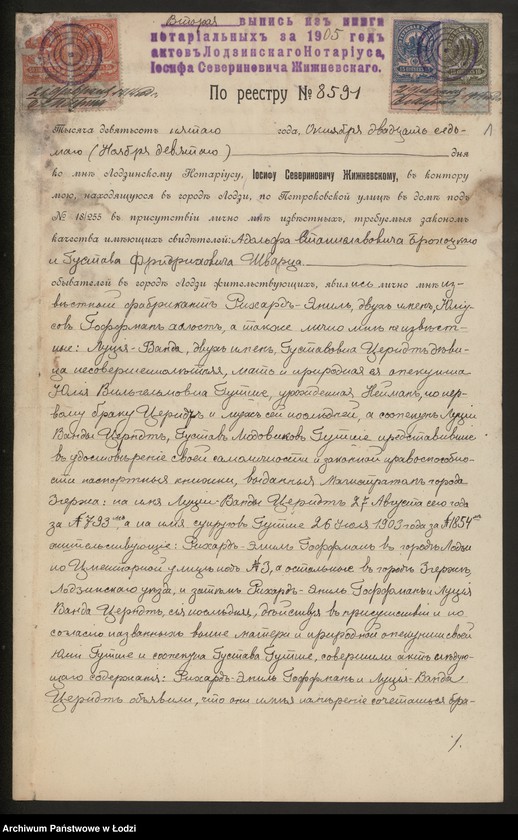 Вторая выпись изъ книги
нотаріальныхъ за 1905 годъ
актовъ Лодзинскаго Нотаріуса,
Іосифа Севериновича Жижневскаго.
По реестру № 8591
Тысяча девятьсотъ пятаго года, Октября двадцать седь-
маго (Ноября девятаго) дня
ко мнѣ Лодзинскому Нотаріусу, Іосифу Севериновичу Жижневскому, въ контору
мою, находящуюся въ городѣ Лодзи, по Петроковской улицѣ въ домѣ подъ
№ 18/255 въ присутствіи лично мнѣ извѣстныхъ, требуемыя закономъ
качества имѣющихъ свидѣтелей: Адольфа Станиславовича
и Густава Фридриховича Шварца
обывателей въ городѣ Лодзи жительствующихъ, явились лично мнѣ из-
вѣстный фабрикантъ Рихардъ-Эмиль, двухъ именъ, Юлiу-
совъ Гоффманъ холостъ, а также лично мнѣ неизвѣст-
ные: Луція-Ванда, двухъ именъ, Густавовна Церндтъ дѣви-
ца несовершеннолѣтняя, мать и природная ея опекунша
Юлія Вильгельмовна Гутше, урожденная Нейманъ, по пер-
вому браку Церндтъ и мужъ сей последней, а соопекунъ Луціи
Ванды Церндтъ, Густавъ Людвиковъ Гутше представившіе
въ удостовѣреніе своей самоличности и законной правоспособно-
сти паспортныя книжки, выданныя Магистратомъ города
Згержа: на имя Луціи-Ванды Церндтъ 27 Августа сего года
за № 733, а на имя супруговъ Гутше 26 Іюля 1903 года за № 1854
жительствующіе: Рихардъ-Эмиль Гоффманъ въ городѣ Лодзи
по улицѣ подъ № 3, а остальные въ городѣ Згержѣ,
Лодзинскаго уѣзда, и затѣмъ Рихардъ-Эмиль Гоффманъ и Луція
Ванда Церндтъ, сія послѣдняя, дѣйствуя въ присутствіи и по
согласію названныхъ выше матери и природной опекунши своей
Юліи Гутше и соопекуна Густава Гутше, совершили актъ слѣдую-
щаго содержанія: Рихардъ-Эмиль Гоффманъ и Луція-Ванда
Церндтъ объявили, что они имѣя намѣреніе сочетаться бра-
Archiwum Państwowe w Łodzi